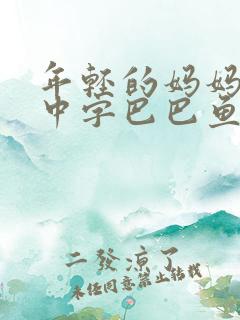 年轻的妈妈
中字巴巴鱼
二發涼了
未经同意禁止转载